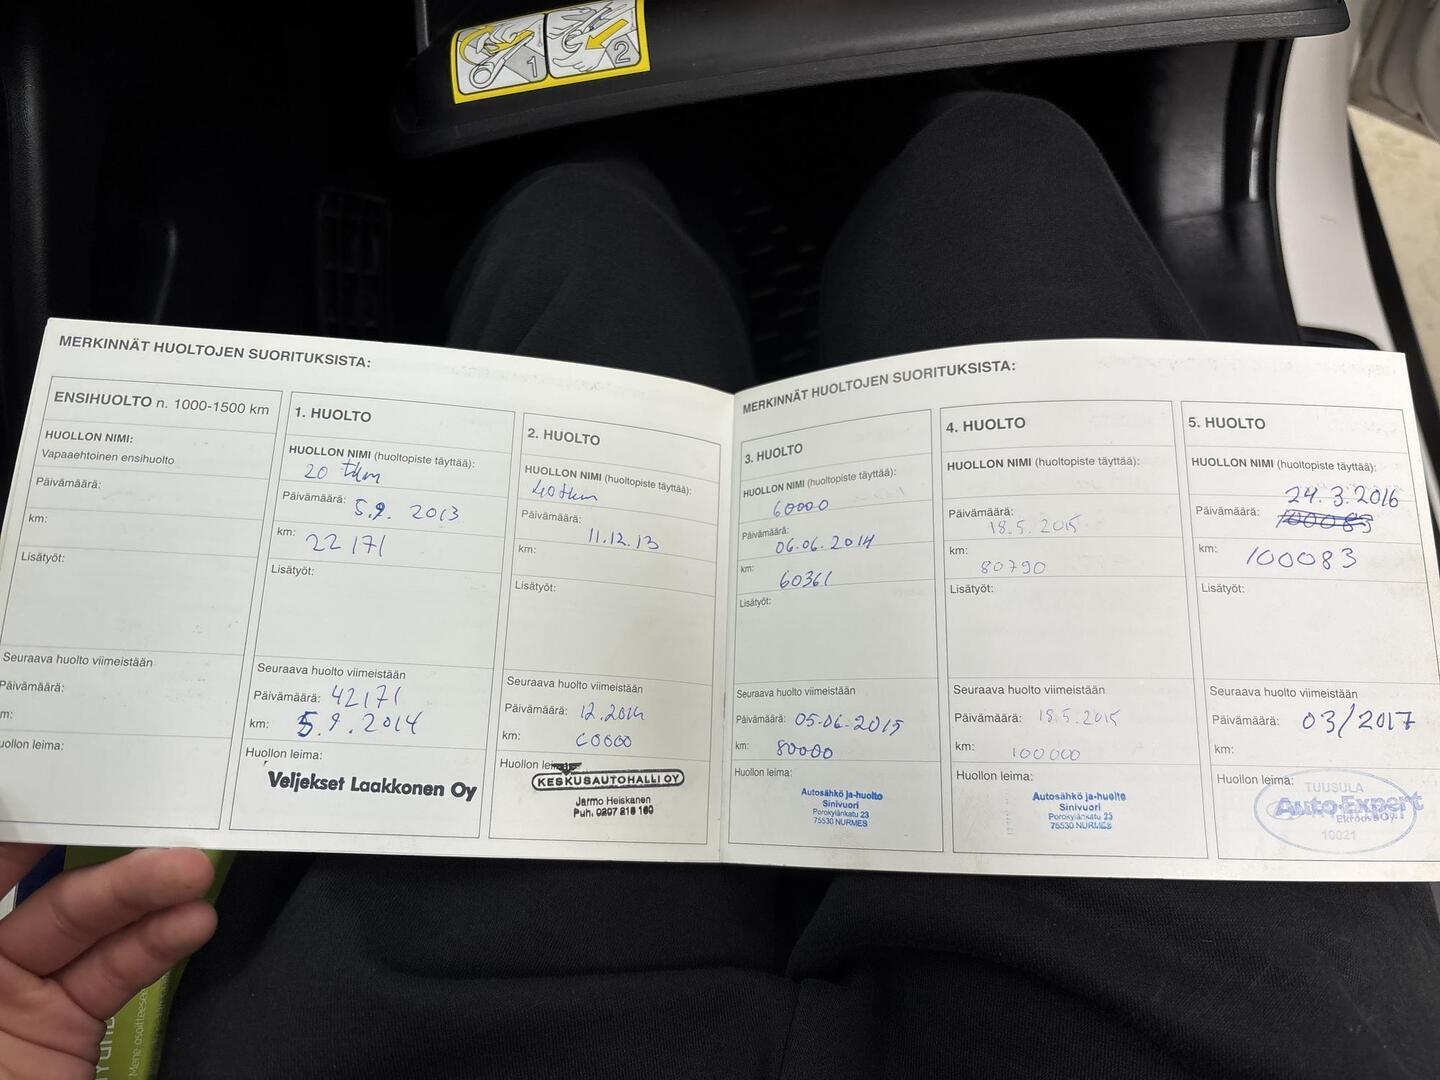 1
2
MERKINNÄT HUOLTOJEN SUORITUKSISTA:
ENSIHUOLTO n. 1000-1500 km
HUOLLON NIMI:
Vapaaehtoinen ensihuolto
Päivämäärä:
km:
Lisätyöt:
Seuraava huolto viimeistään
Päivämäärä:
m:
uollon leima:
1. HUOLTO
HUOLLON NIMI (huoltopiste täyttää):
20 tkm
Päivämäärä: 5.9. 2013
km: 22171
Lisätyöt:
Seuraava huolto viimeistään
Päivämäärä: 42171
km: 5.9.2014
Huollon leima:
Veljekset Laakkonen Oy
2. HUOLTO
HUOLLON NIMI (huoltopiste täyttää):
40tkm
Päivämäärä:
11.12.13
km:
Lisätyöt:
Seuraava huolto viimeistään
Päivämäärä: 12.2014
km: 60000
Huollon leima:
KESKUSAUTOHALLI OY
Jarmo Heiskanen
Puh. 0207 216 160
MERKINNÄT HUOLTOJEN SUORITUKSISTA:
3. HUOLTO
HUOLLON NIMI (huoltopiste täyttää):
60000
Päivämäärä:
06.06.2014
km:
60361
Lisätyöt:
Seuraava huolto viimeistään
Päivämäärä: 05.06.2015
km: 80000
Huollon leima:
Autosähkö ja-huolto
Sinivuori
Porokylänkatu 23
75530 NURMES
4. HUOLTO
HUOLLON NIMI (huoltopiste täyttää):
Päivämäärä:
18.5.2015
km:
80790
Lisätyöt:
Seuraava huolto viimeistään
Päivämäärä: 18.5.2015
km: 100000
Huollon leima:
Autosähkö ja-huolto
Sinivuori
Porokylänkatu 23
75530 NURMES
5. HUOLTO
HUOLLON NIMI (huoltopiste täyttää):
24.3.2016
Päivämäärä: 100083
km: 100083
Lisätyöt:
Seuraava huolto viimeistään
Päivämäärä: 03/2017
km:
Huollon leima:
TUUSULA
AutoExpert
Ekroos Oy
10021
Mene osoitteesee